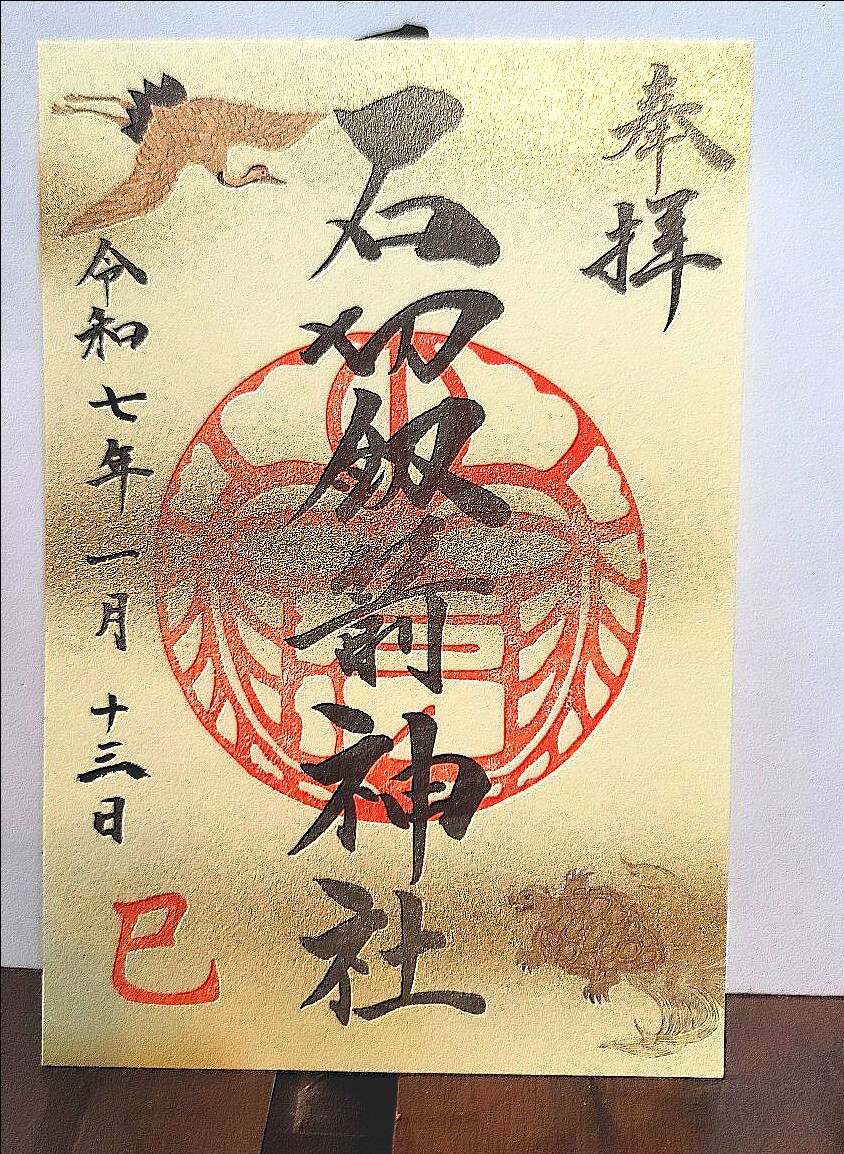 奉拝
石切劔箭神社
令和七年一月十三日
巳